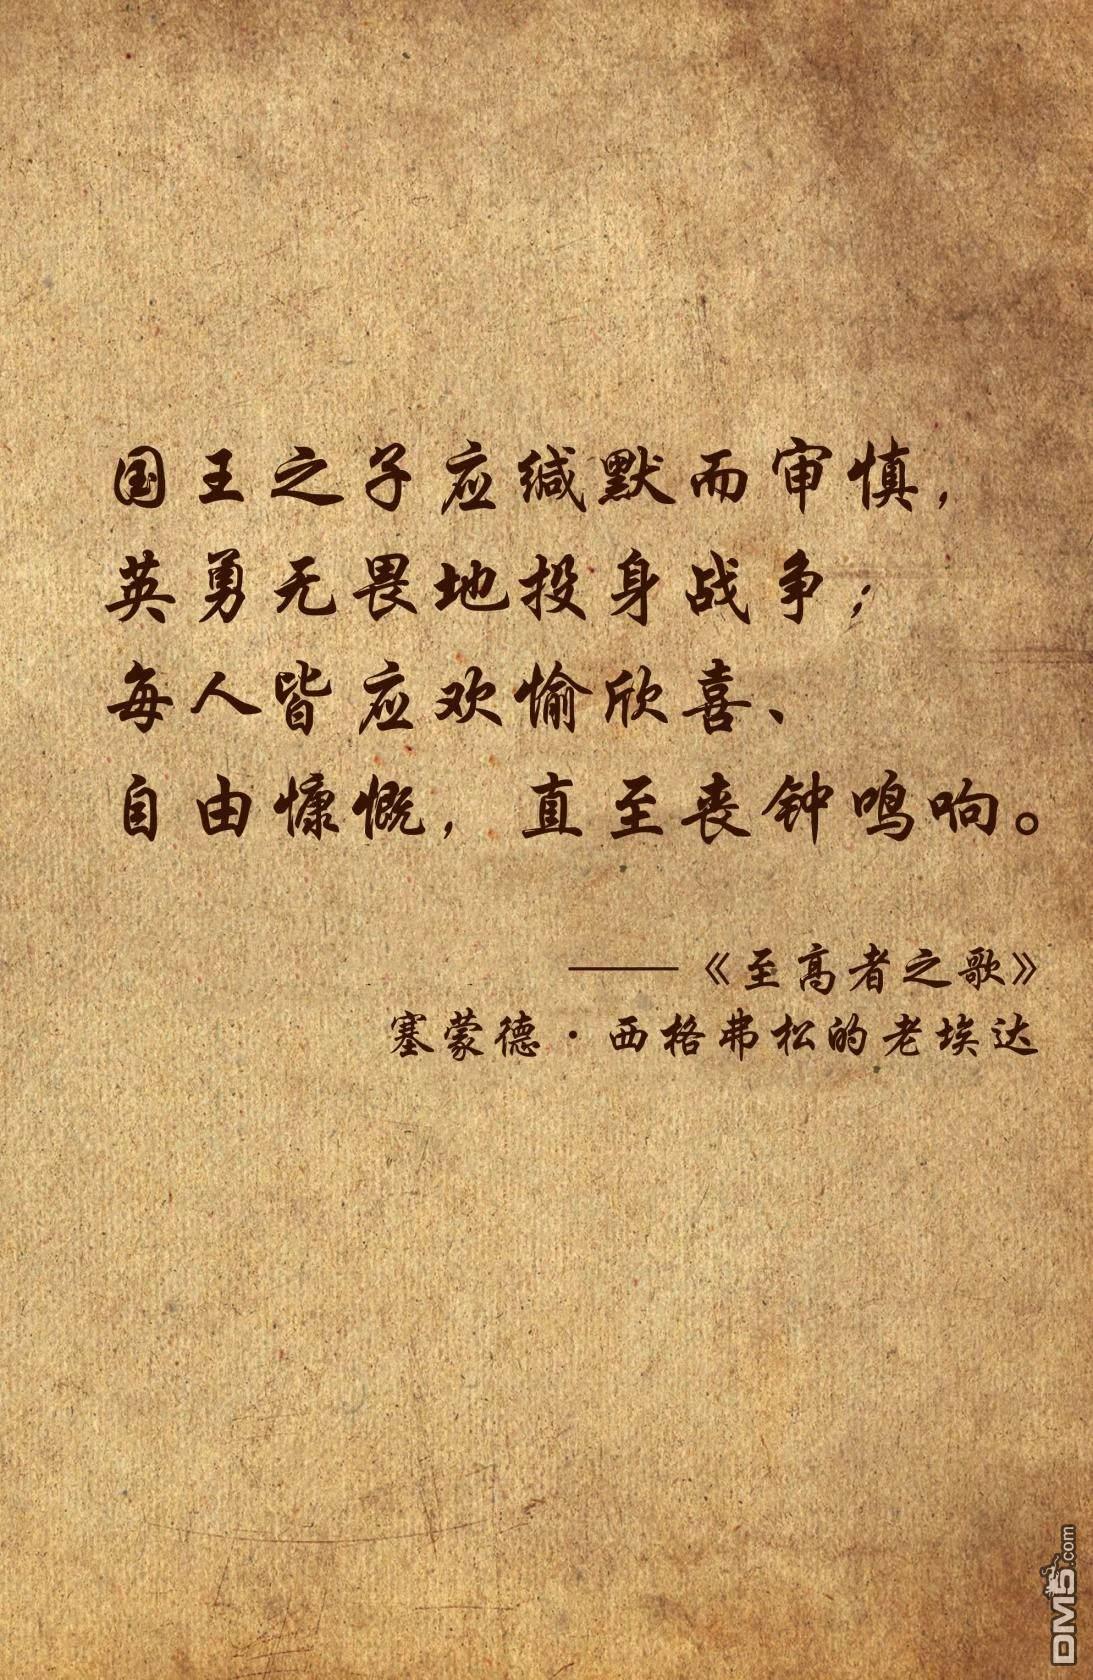 国王之子应缄默而审慎，
英勇无畏地投身战争；
每人皆应欢愉欣喜、
自由慷慨，直至丧钟鸣响。
——《至高者之歌》
塞蒙德·西格弗松的老埃达
DM5.com